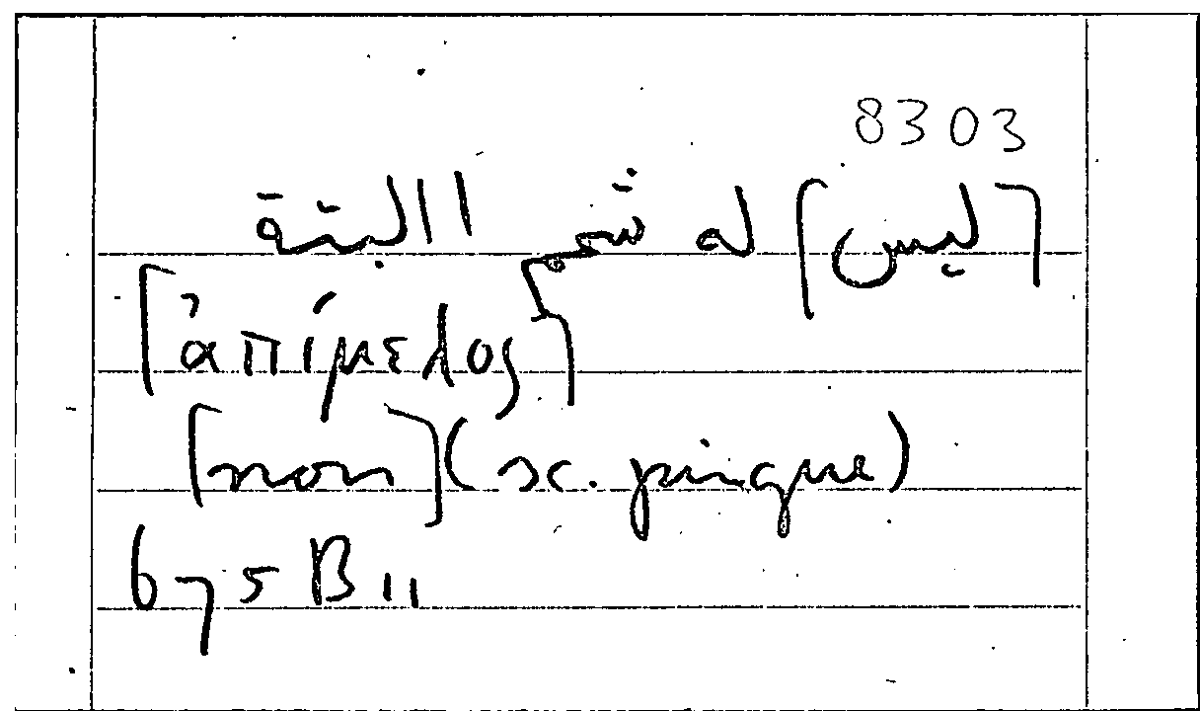 8303
[ليس] له شحم البتة
[ἀπίμελος]
[non] (sc. pingue)
675 B 11